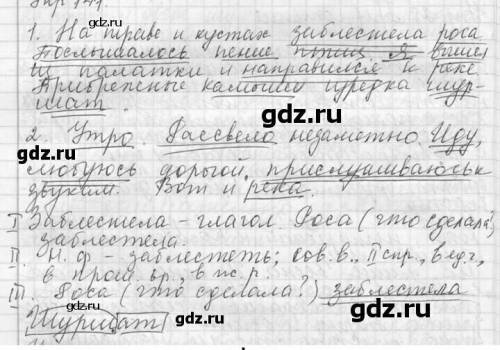 Упр 141
1. На траве и кустах заблестела роса
Послышалось пение птиц Я вышел
из палатки и направился к реке
Прибрежные камыши изредка шур-
шат.
gdz.ru gdz.ru
2. Утро. Рассвело незаметно. Иду,
любуюсь дорогой, прислушиваюсь к
звукам. Вот и река.
gdz.ru gdz.ru
I Заблестела - глагол. Роса (что сделала)
заблестела.
II. Н.ф - заблестеть; сов.в., II спр., в ед.ч,
в прош. вр., в ж.р.
III. Роса (что сделала?) заблестела
Шуршат
gdz.ru gdz.ru